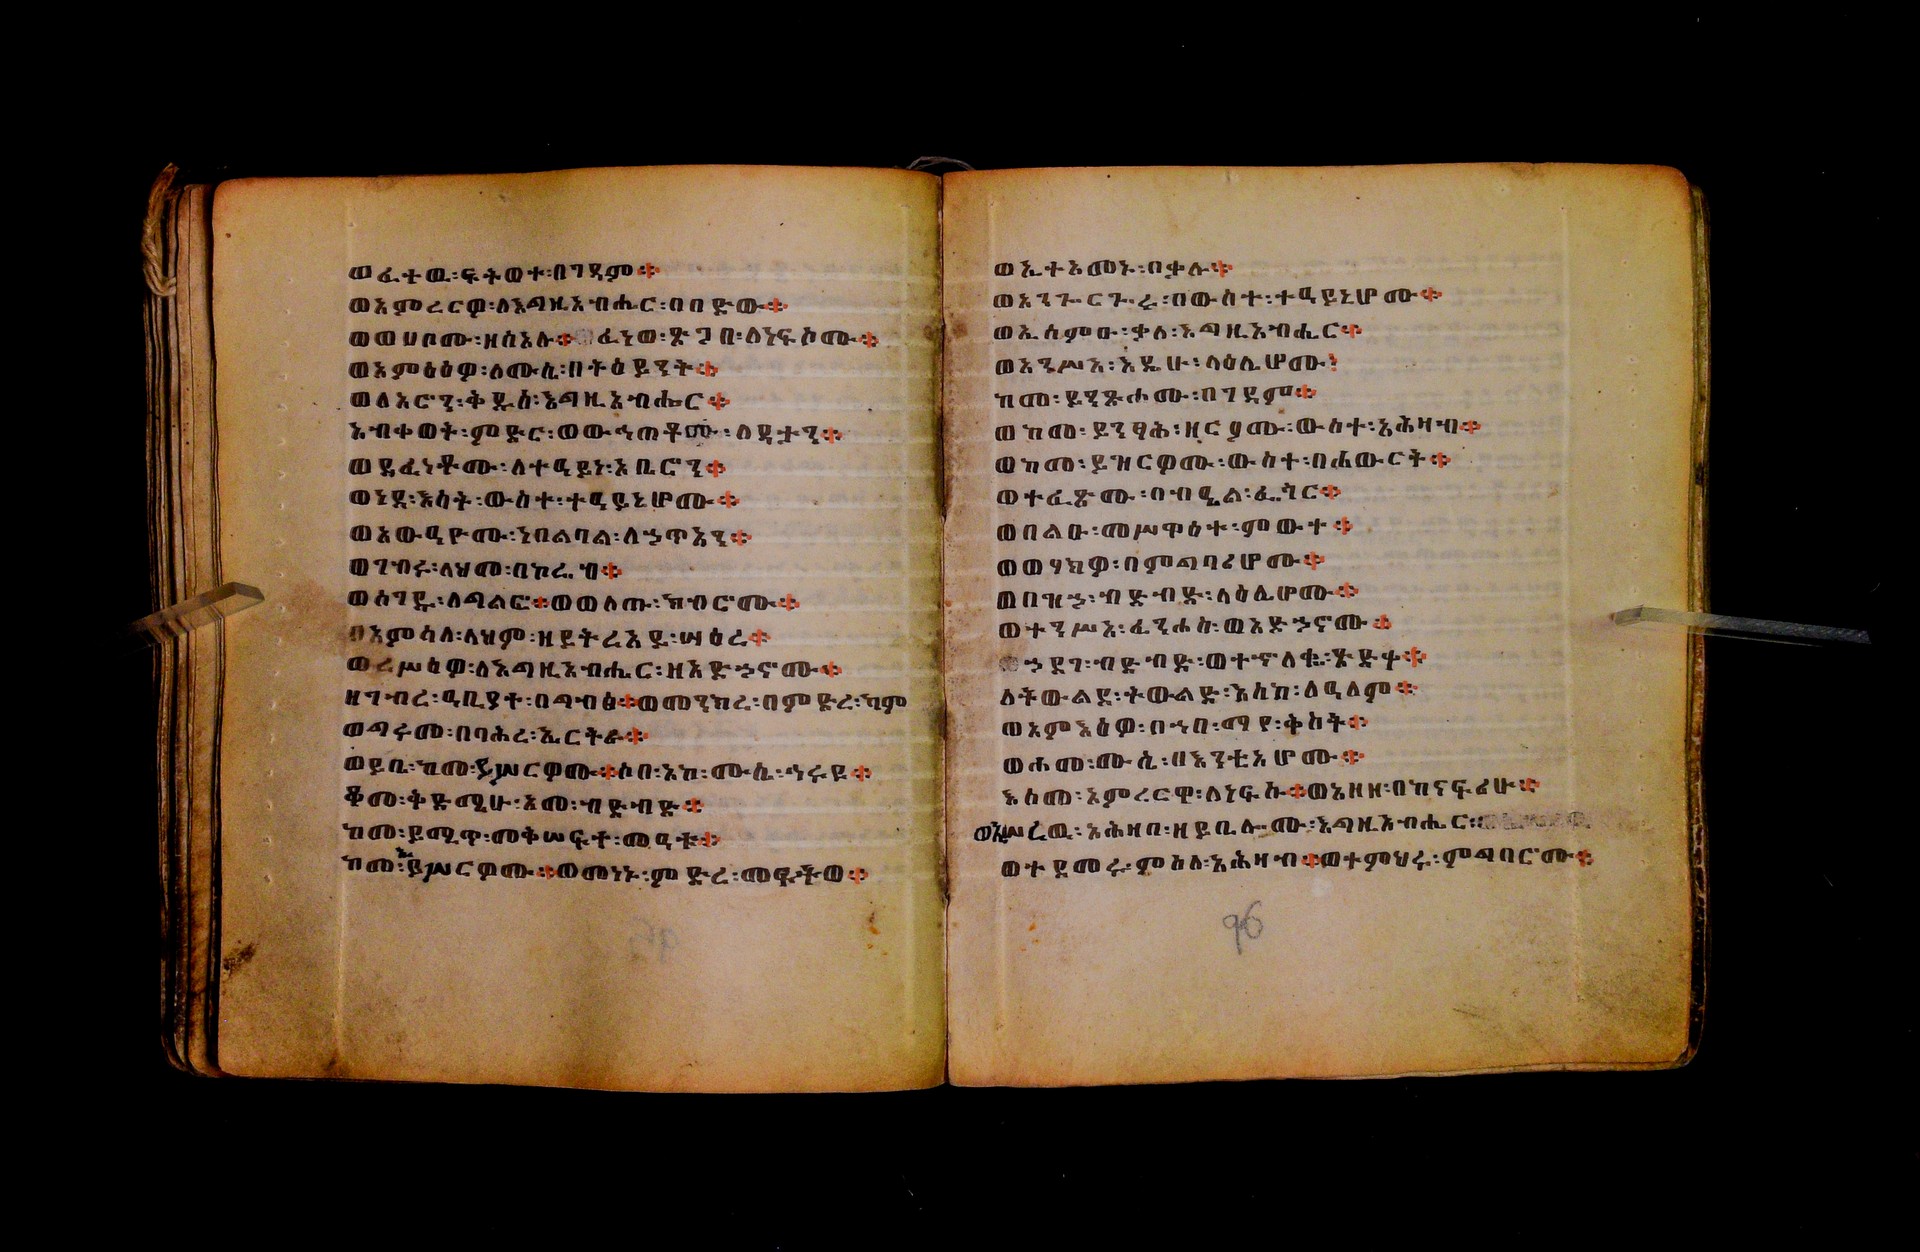 ወፈተዉ፡ፍትወተ፡በገዳም።
ወአምረርዎ፡ለእግዚአብሔር፡በበድው።
ወወሀቦሙ፡ዘሰአሉ።ፈነወ፡ጽጋበ፡ለነፍሶሙ።
ወአምዕዕዎ፡ለሙሴ፡በትዕይንት።
ወለአሮን፡ቅዱስ፡እግዚአብሔር።
አብቀወት፡ምድር፡ወውኅጠቶሙ፡ለዳታን።
ወደፈነቶሙ፡ለተዓይነ፡አቤሮን።
ወነደ፡እሳት፡ውስተ፡ተዓይኒሆሙ።
ወአውዓዮሙ፡ነበልባል፡ለኃጥኣን።
ወገብሩ፡ላህመ፡በኮሬብ።
ወሰገዱ፡ለግልፎ።ወወለጡ፡ክብሮሙ።
በአምሳለ፡ላህም፡ዘይትረአይ፡ሣዕረ።
ወረሥዕዎ፡ለእግዚአብሔር፡ዘአድኃኖሙ።
ዘገብረ፡ዓቢያተ፡በግብፅ።ወመንክረ፡በምድረ፡ካም
ወግሩመ፡በባሕረ፡ኤርትራ።
ወይቤ፡ከመ፡ይሠርዎሙ።ሶበ፡አኮ፡ሙሴ፡ኅሩይ።
ቆመ፡ቅድሜሁ፡አመ፡ብድብድ።
ከመ፡ይሚጥ፡መቅሠፍተ፡መዓቱ።
ከመ፡ኢይሠርዎሙ።ወመነኑ፡ምድረ፡መፍትወ።
ወኢተአመኑ፡በቃሉ።
ወአንጐርጐሩ፡በውስተ፡ተዓይኒሆሙ።
ወኢሰምዑ፡ቃለ፡እግዚአብሔር።
ወአንሥአ፡እዴሁ፡ላዕሌሆሙ፡
ከመ፡ይንጽሖሙ፡በገዳም።
ወከመ፡ይንፃሕ፡ዘርዖሙ፡ውስተ፡አሕዛብ።
ወከመ፡ይዝርዎሙ፡ውስተ፡በሐውርት።
ወተፈጸሙ፡በብዔል፡ፌጎር።
ወበልዑ፡መሥዋዕተ፡ምውተ።
ወወሃክዎ፡በምግባሪሆሙ።
ወበዝኃ፡ብድብድ፡ላዕሌሆሙ።
ወተንሥአ፡ፊንሐስ፡ወአድኃኖሙ።
ኃደገ፡ብድብድ፡ወተኆለቁ፡ጽድቀ።
ለትውልደ፡ትውልድ፡እስከ፡ለዓለም።
ወአምእዕዎ፡በኀበ፡ማየ፡ቅስት።
ወሐመ፡ሙሴ፡በእንቲአሆሙ።
እስመ፡አምረርዋ፡ለነፍሱ።ወአዘዘ፡በከናፍሪሁ።
ወኢሠረዉ፡አሕዛበ፡ዘይቤሎሙ፡እግዚአብሔር፡
ወተደመሩ፡ምስለ፡አሕዛብ።ወተምህሩ፡ምግባሮሙ።